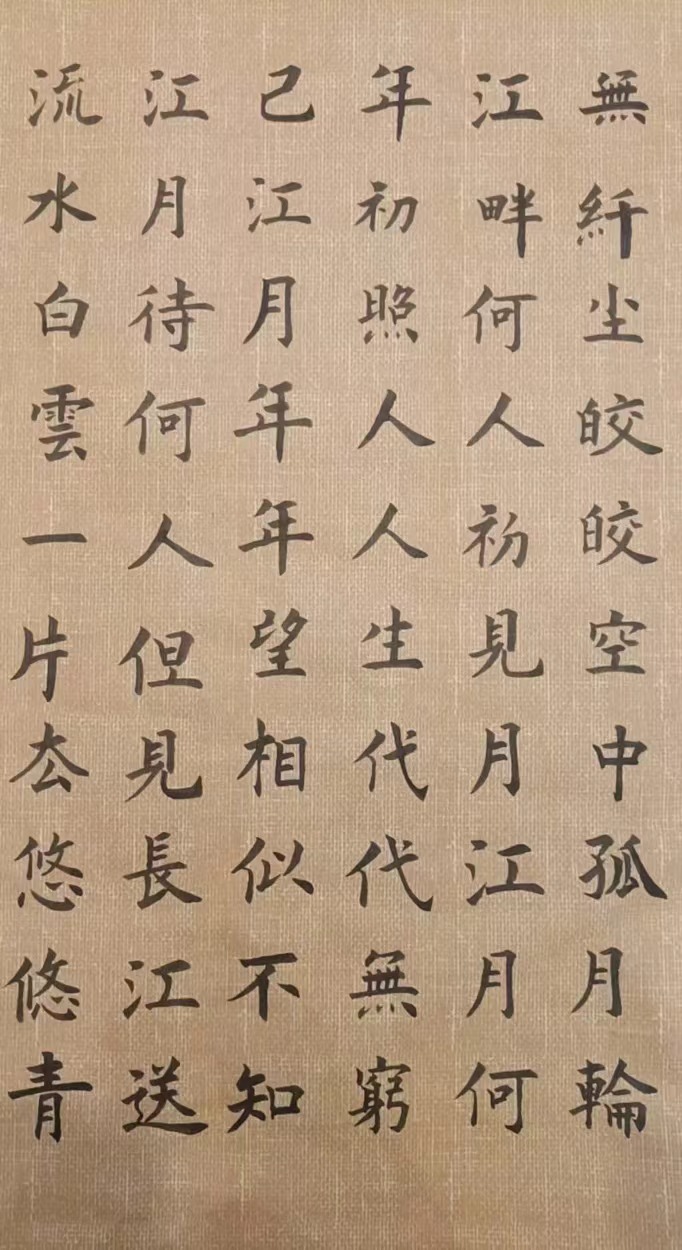 無纤尘皎皎空中孤月輪
江畔何人初見月江月何
年初照人人生代代無窮
己江月年年望相似不知
江月待何人但見長江送
流水白雲一片厺悠悠青